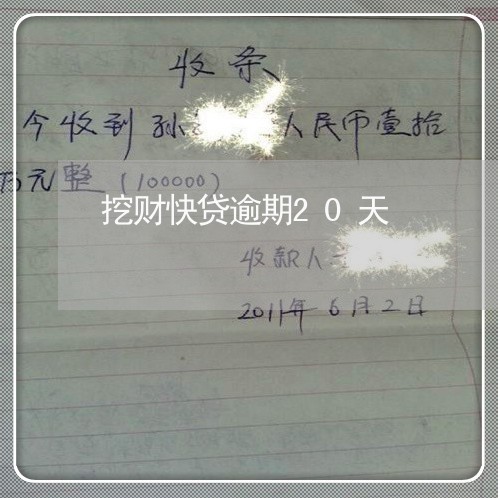 收条
今收到孙 人民币壹拾
万元整（100000）
挖财快贷逾期20天
收款人
2011年6月2日